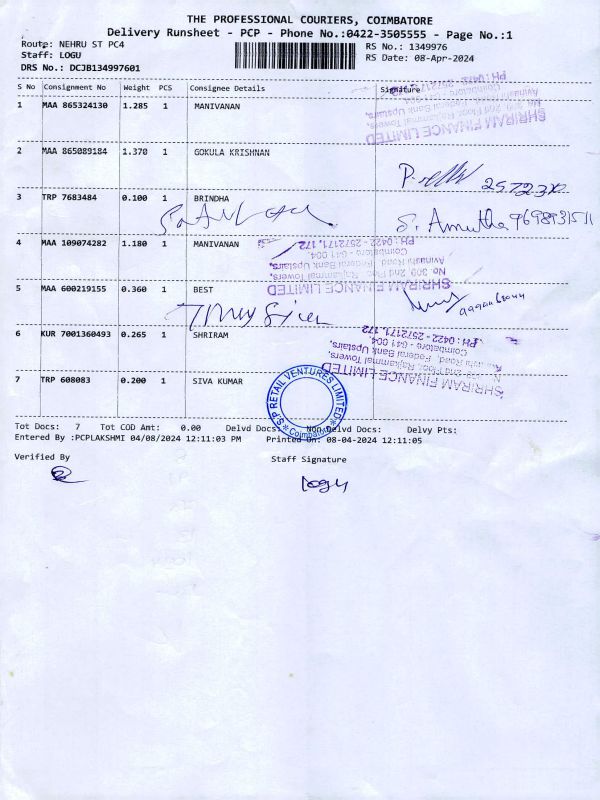 THE PROFESSIONAL COURIERS, COIMBATORE
Delivery Runsheet - PCP - Phone No.:0422-3505555 - Page No.:1
Route: NEHRU ST PC4
RS No.: 1349976
Staff: LOGU
RS Date: 08-Apr-2024
DRS No.: DCJB134997601
S No Consignment No Weight PCS Consignee Details Signature
PH : 0422 - 2572171, 172
Coimbatore - 641 004
Avinashi Road, Federal Bank Upstairs,
No. 309, 2nd Floor, Rajkammal Towers,
SHRIRAM FINANCE LIMITED
1 MAA 865324130 1.285 1 MANIVANAN
2 MAA 865089184 1.370 1 GOKULA KRISHNAN
3 TRP 7683484 0.100 1 BRINDHA
S. Amutha 9698931511
4 MAA 109074282 1.180 1 MANIVANAN
PH : 0422 - 2572171, 172
Coimbatore - 641 004
Avinashi Road, Federal Bank Upstairs,
No. 309, 2nd Floor, Rajkammal Towers,
SHRIRAM FINANCE LIMITED
5 MAA 600219155 0.360 1 BEST
6 KUR 7001360493 0.265 1 SHRIRAM
PH : 0422 - 2572171, 172
Coimbatore - 641 004
Road, Federal Bank Upstairs,
2nd Floor, Rajkammal Towers,
SHRIRAM FINANCE LIMITED
7 TRP 608083 0.200 1 SIVA KUMAR
SP RETAIL VENTURES LIMITED
Coimbatore
Tot Docs: 7 Tot COD Amt: 0.00 Delvd Docs: Non Delvd Docs: Delvy Pts:
Entered By :PCPLAKSHMI 04/08/2024 12:11:03 PM Printed On: 08-04-2024 12:11:05
Verified By
Staff Signature
Logu